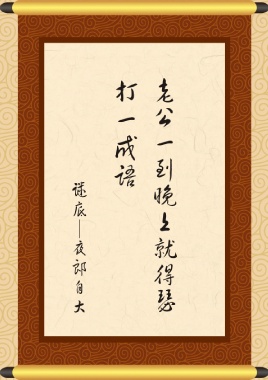 老公一到晚上就得瑟
打一成语
谜底——夜郎自大